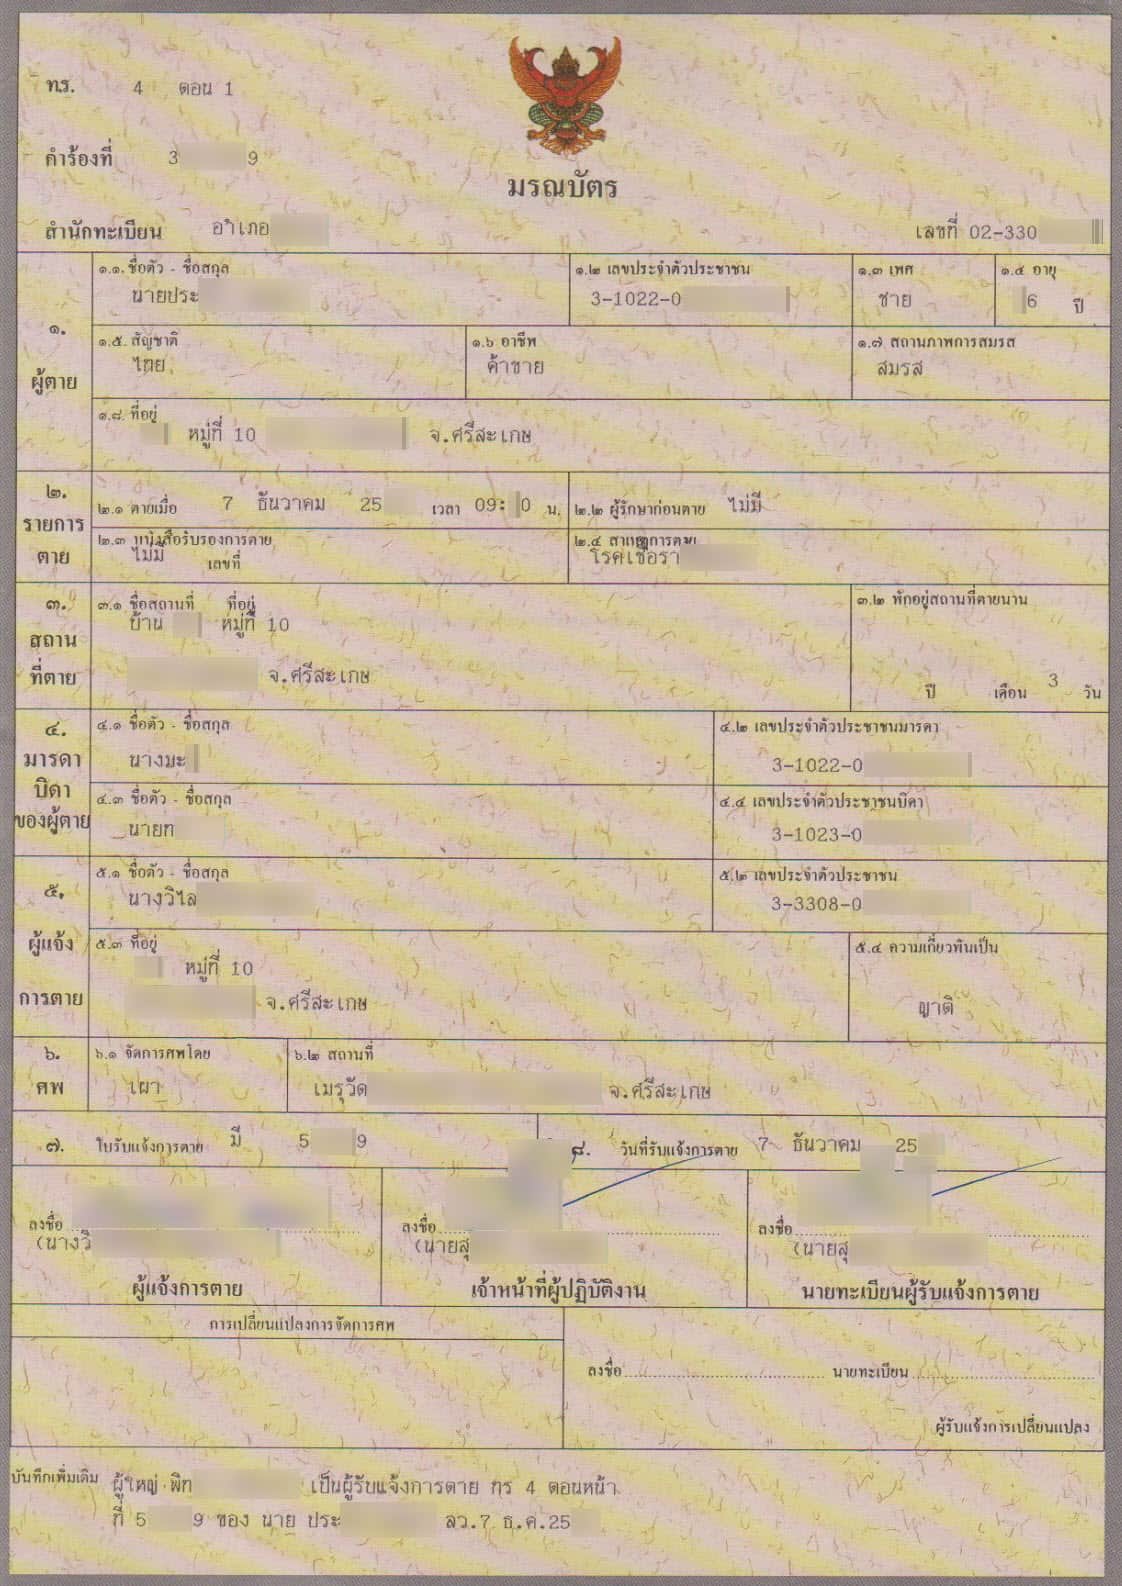 ท.ร. 4 ตอน 1
คำร้องที่ 3 9
มรณบัตร
สำนักทะเบียน อำเภอ
เลขที่ 02-330
๑. ผู้ตาย
๑.๑. ชื่อตัว - ชื่อสกุล
นายประ
๑.๒ เลขประจำตัวประชาชน
3-1022-0
๑.๓ เพศ
ชาย
๑.๔ อายุ
6 ปี
๑.๕. สัญชาติ
ไทย
๑.๖ อาชีพ
ค้าขาย
๑.๗ สถานภาพการสมรส
สมรส
๑.๘. ที่อยู่
หมู่ที่ 10 จ.ศรีสะเกษ
๒. รายการตาย
๒.๑ ตายเมื่อ 7 ธันวาคม 25 เวลา 09: 0 น.
๒.๒ ผู้รักษาก่อนตาย ไม่มี
๒.๓ หนังสือรับรองการตาย
ไม่มี เลขที่
๒.๔ สาเหตุการตาย
โรคเชื้อรา
๓. สถานที่ตาย
๓.๑ ชื่อสถานที่ ที่อยู่
บ้าน หมู่ที่ 10
จ.ศรีสะเกษ
๓.๒ พักอยู่สถานที่ตายนาน
ปี เดือน 3 วัน
๔. มารดา บิดา ของผู้ตาย
๔.๑ ชื่อตัว - ชื่อสกุล
นางมะ
๔.๒ เลขประจำตัวประชาชนมารดา
3-1022-0
๔.๓ ชื่อตัว - ชื่อสกุล
นายก
๔.๔ เลขประจำตัวประชาชนบิดา
3-1023-0
๕. ผู้แจ้งการตาย
๕.๑ ชื่อตัว - ชื่อสกุล
นางวิไล
๕.๒ เลขประจำตัวประชาชน
3-3308-0
๕.๓ ที่อยู่
หมู่ที่ 10
จ.ศรีสะเกษ
๕.๔ ความเกี่ยวพันเป็น
ญาติ
๖. ศพ
๖.๑ จัดการศพโดย
เผา
๖.๒ สถานที่
เมรุวัด จ.ศรีสะเกษ
๗. ใบรับแจ้งการตาย มี 5 9
๘. วันที่รับแจ้งการตาย 7 ธันวาคม 25
ลงชื่อ
(นางวิ
ผู้แจ้งการตาย
ลงชื่อ
(นายสุ
เจ้าหน้าที่ผู้ปฏิบัติงาน
ลงชื่อ
(นายสุ
นายทะเบียนผู้รับแจ้งการตาย
การเปลี่ยนแปลงการจัดการศพ
ลงชื่อ นายทะเบียน
ผู้รับแจ้งการเปลี่ยนแปลง
บันทึกเพิ่มเติม ผู้ใหญ่ พิท เป็นผู้รับแจ้งการตาย ทร 4 ตอนหน้า
ที่ 5 9 ของ นาย ประ ลว.7 ธ.ค.25